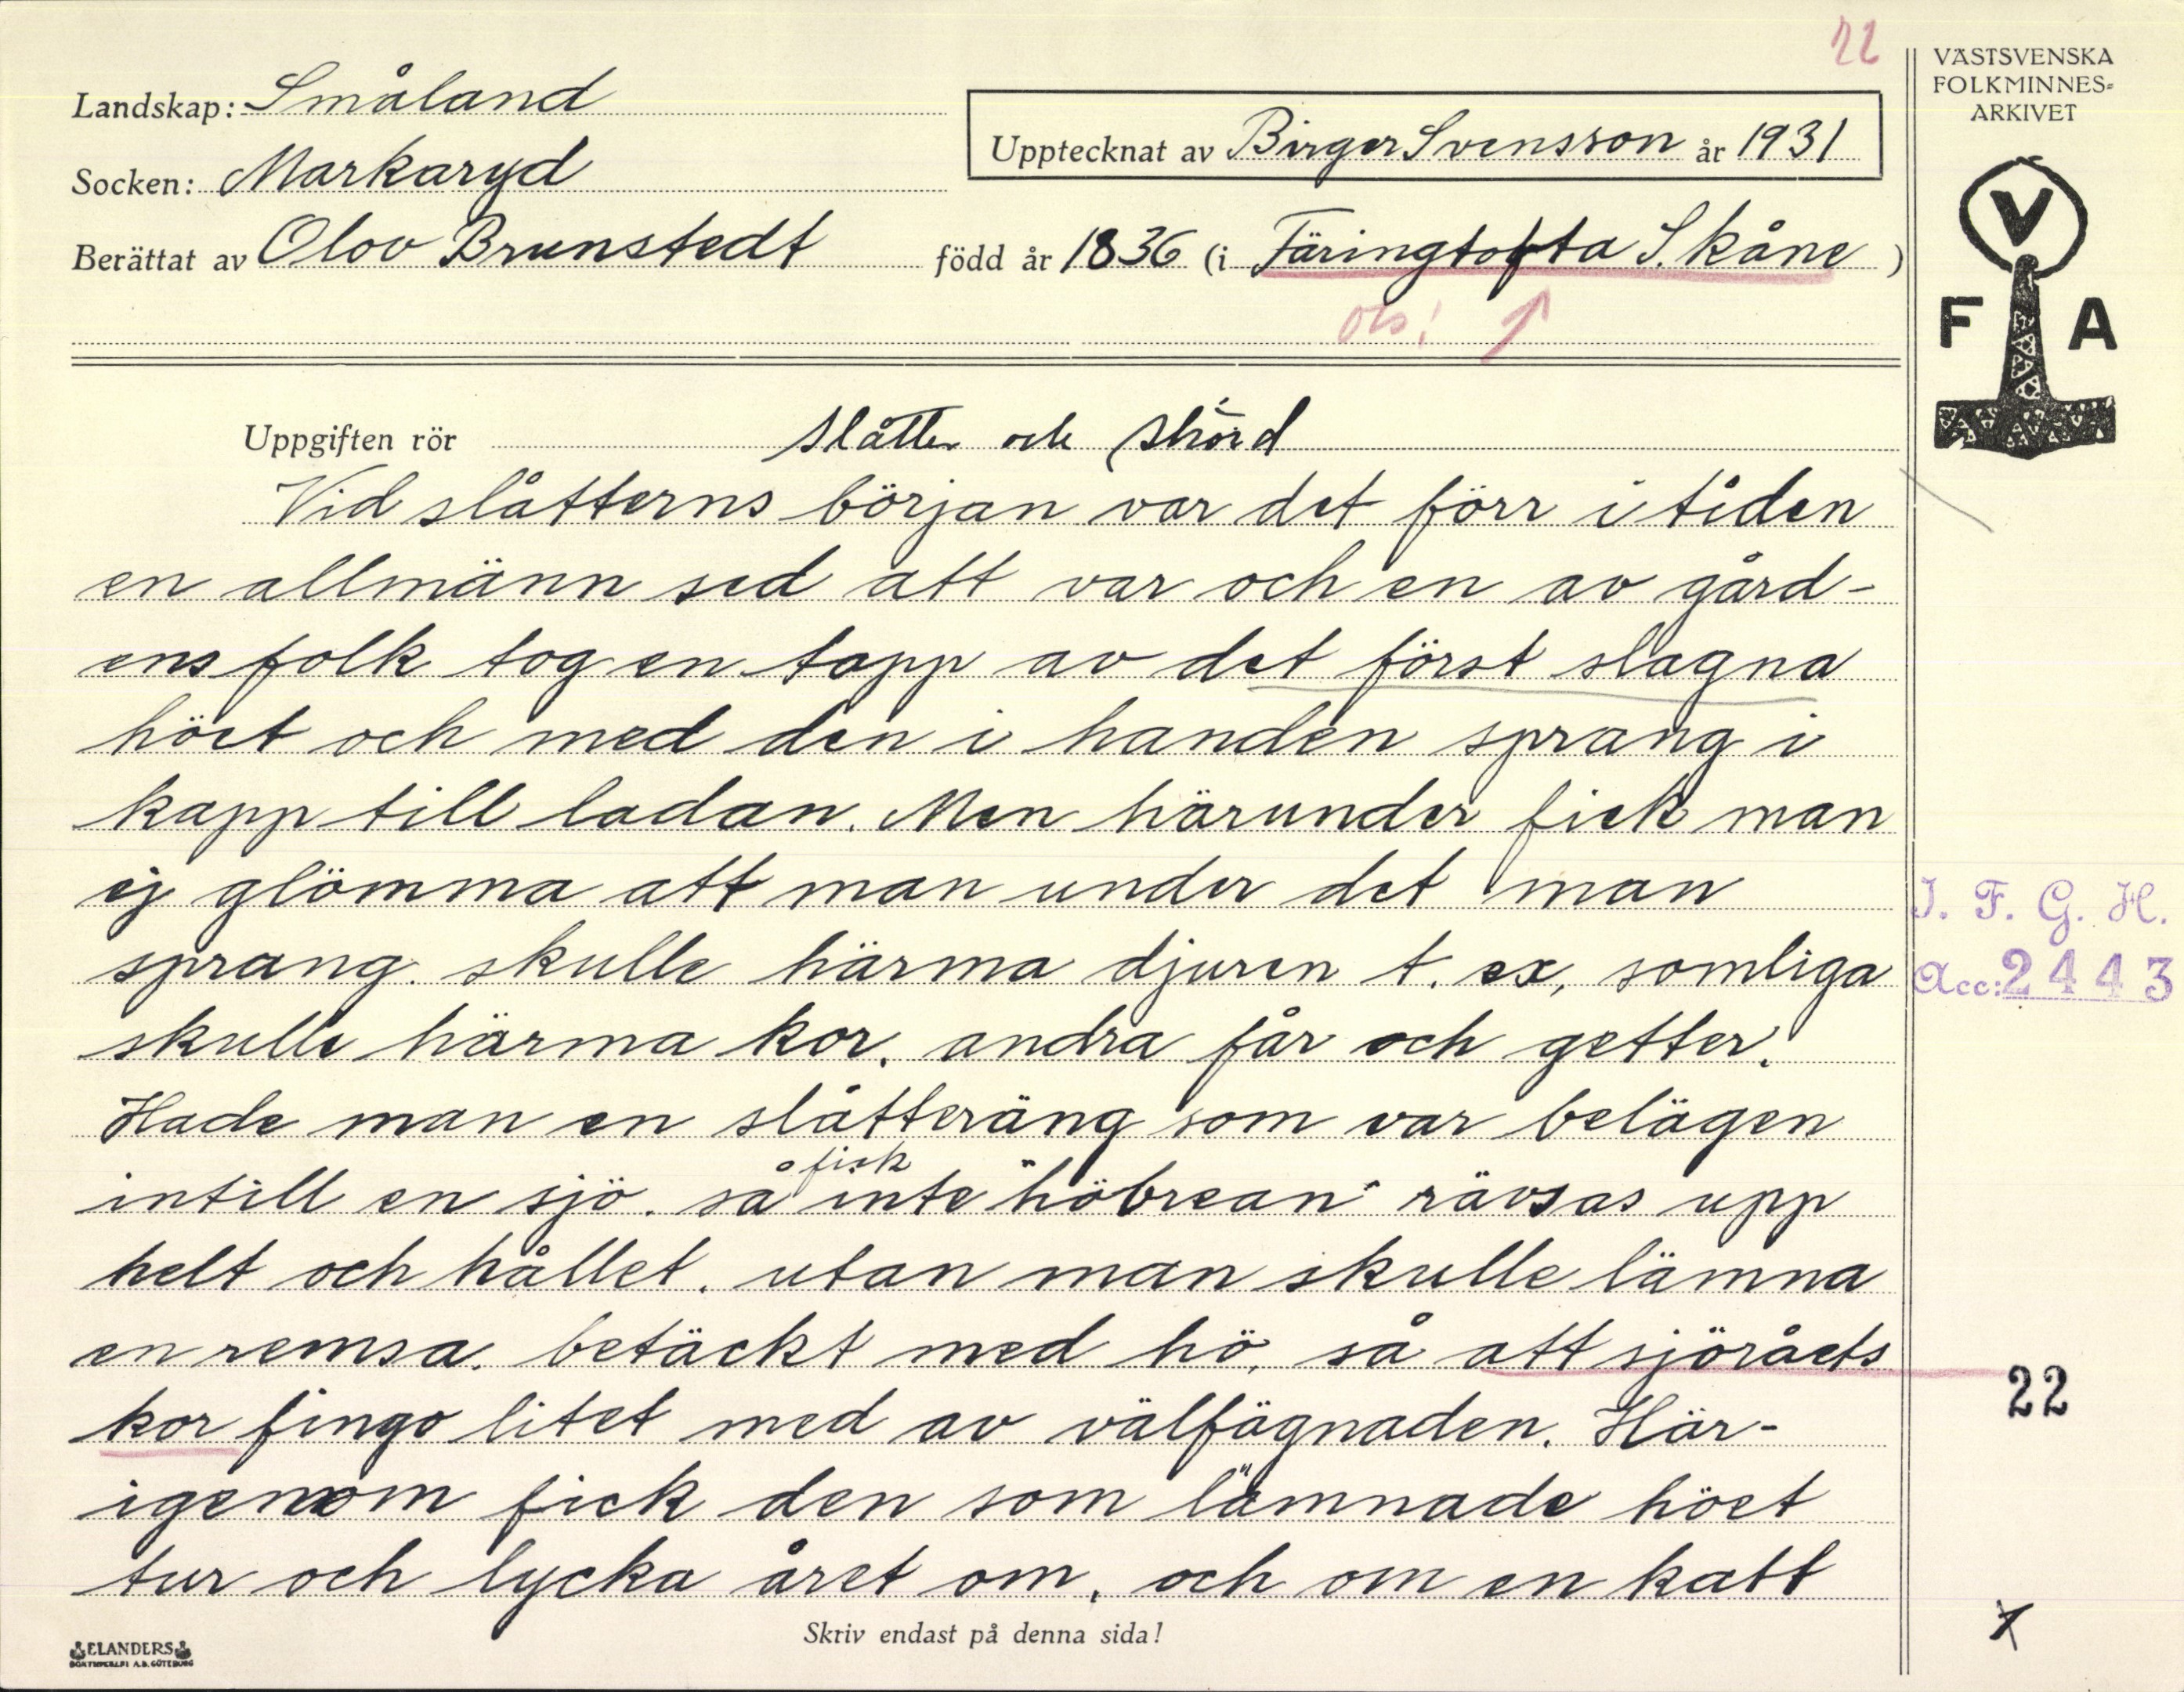 22
VÄSTSVENSKA
FOLKMINNES-
ARKIVET
Landskap: Småland
Upptecknat av Birger Svensson år 1931
Socken: Markaryd
V
Berättat av Olov Brunstedt född år 1836 (i Färingtofta Skåne)
obs!
F A
Uppgiften rör slåtter och skörd
Vid slåtterns början var det förr i tiden
en allmänn sed att var och en av gård-
ens folk tog en tapp av det först slagna
höet och med den i handen sprang i
kapp till ladan. Men härunder fick man
ej glömma att man under det man
sprang. skulle härma djuren t. ex, somliga
skulle härma kor, andra får och getter.
Hade man en slåtteräng som var belägen
intill en sjö. så fick inte "höbrean" rävsas upp
helt och hållet. utan man skulle lämna
en remsa. betäckt med hö, så att sjöråets
kor fingo litet med av välfägnaden. Här-
igenom fick den som lämnade höet
tur och lycka året om, och om en katt
J. F. G. H.
Acc: 2443
22
x
Skriv endast på denna sida!
ELANDERS
BOKTRYCKERI A.B. GÖTEBORG